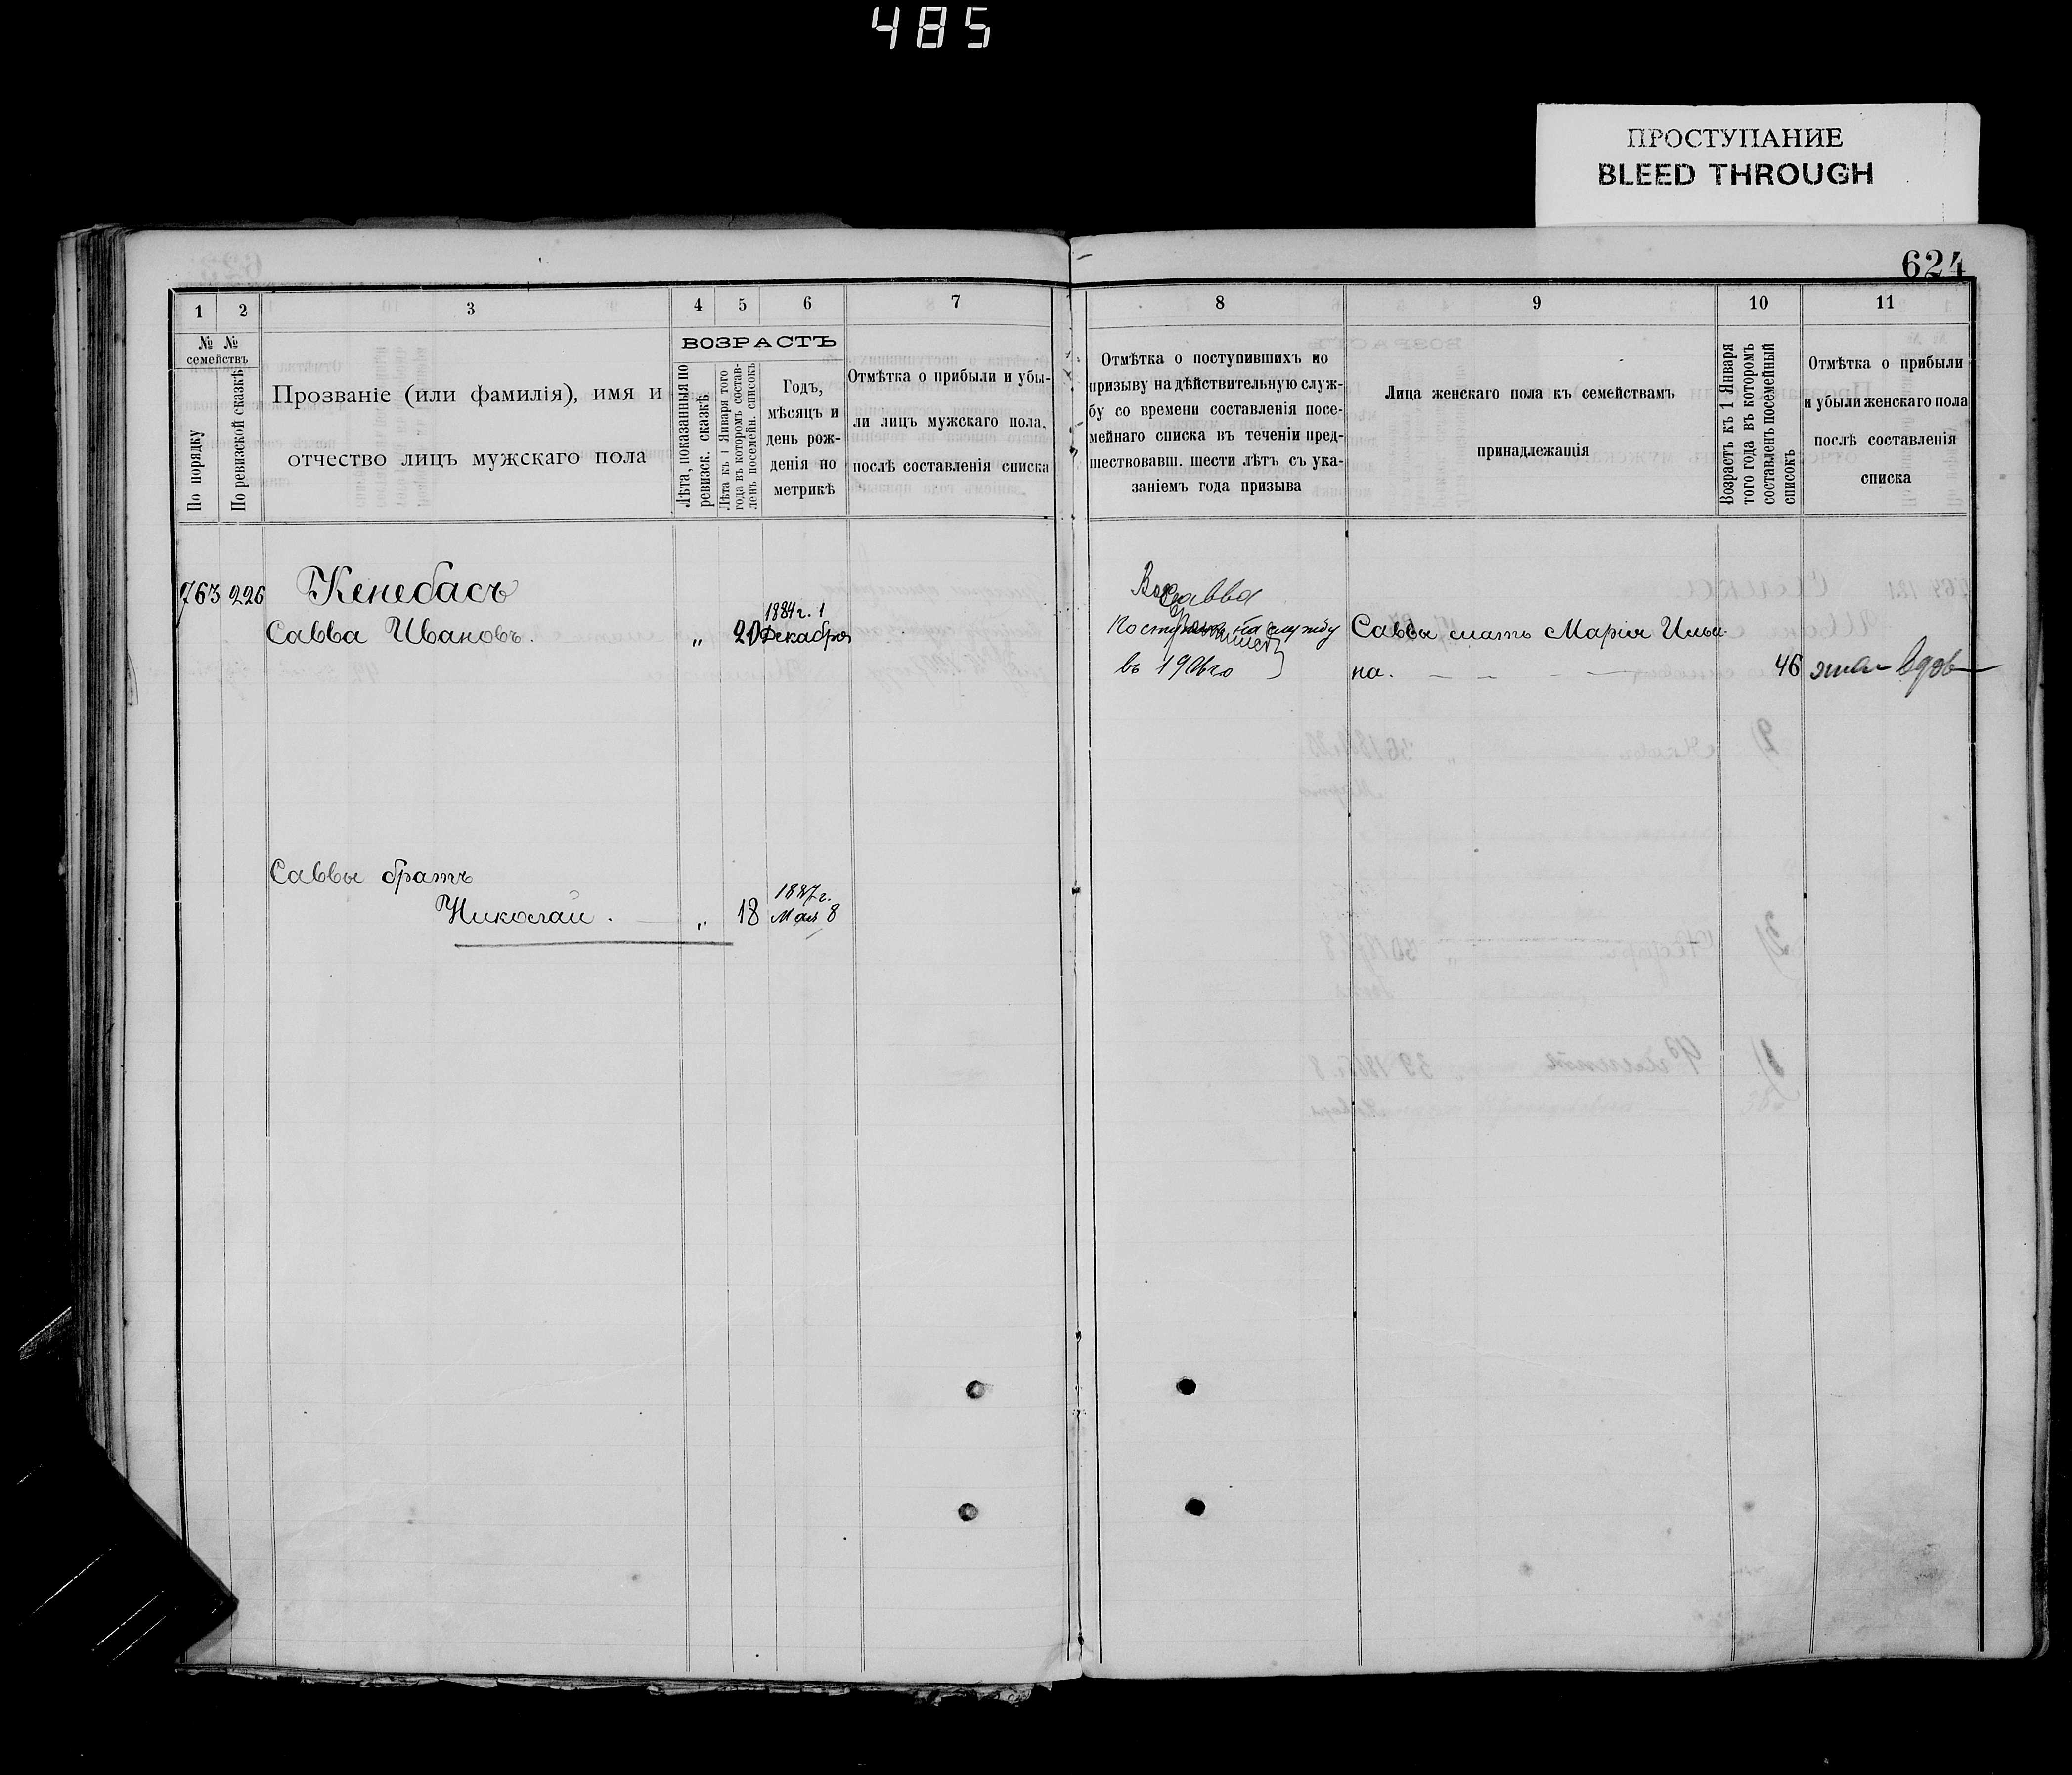 485
ПРОСТУПАНИЕ
BLEED THROUGH
624
1 2 3 4 5 6 7
№ № семействъ
По порядку
По ревизской сказкѣ
Прозваніе (или фамилія), имя и
отчество лицъ мужскаго пола
ВОЗРАСТЪ
Лѣта, показанныя по
ревизск. сказкѣ.
Лѣта къ 1 Января того
года въ которомъ состав-
ленъ посемейн. списокъ
Годъ,
мѣсяцъ и
день рож-
денія по
метрикѣ
Отмѣтка о прибыли и убы-
ли лицъ мужскаго пола,
послѣ составленія списка
763 226 Кенебасъ
1884 г. 1
Савва Ивановъ. „ 20 Декабря
Саввы братъ
1887 г.
Николай. „ 18 Мая 8
8 9 10 11
Отмѣтка о поступившихъ по
призыву на дѣйствительную служ-
бу со времени составленія посе-
мейнаго списка въ теченіи пред-
шествовавш. шести лѣтъ съ ука-
заніемъ года призыва
Лица женскаго пола къ семействамъ
принадлежащія
Возрастъ къ 1 Января
того года въ которомъ
составленъ посемейный
списокъ
Отмѣтка о прибыли
и убыли женскаго пола
послѣ составленія
списка
Савва
на службу
въ
Саввы мать Марія Ильи-
на. 46